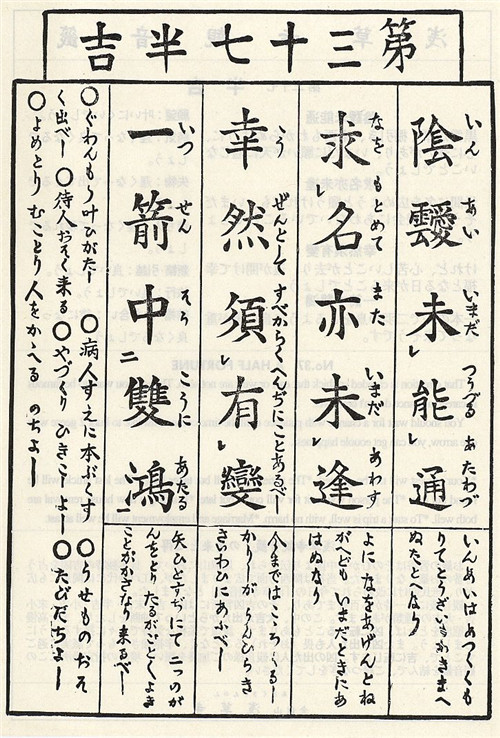 第三十七半吉
陰靉未能通
いん あい いまだ つうづる あたわづ
いんあいはあつくくも
りてとうざいもわきまへ
ぬたとへなり
求名亦未逢
なを もとめて また いまだ あわず
よになをあげんとね
がへどもいまだときにあ
はぬなり
幸然須有變
今まではこころくるし
かりしがうんひらき
さいわひにあふべし
一箭中雙鴻
いつ せん そう こうに あたる
矢ひとすぢにて二つのが
んをとりたるがごとくよき
ことかさなり来るべし
○ぐわんもう叶ひがたし ○病人すえに本ぷくす ○うせものおそ
く出べし ○待人おそく来る ○やづくりひきこしよし ○たびだちよし
○よめとりむことり人をかかへるのちよし